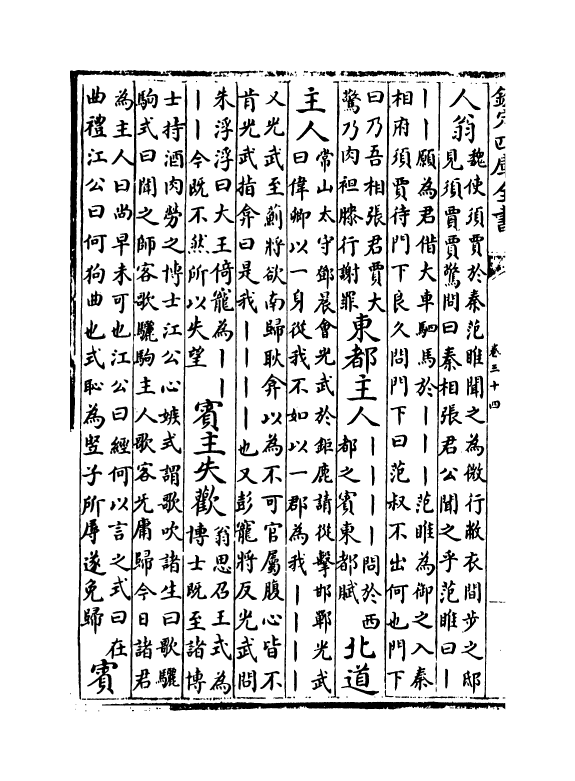 欽定四庫全書
卷三十四
人翁
魏使須賈於秦范睢聞之為微行敝衣間步之邸
見須賈賈驚問曰秦相張君公聞之乎范睢曰丨
丨丨願為君借大車駟馬於丨丨丨范睢為御之入秦
相府須賈待門下良久問門下曰范叔不出何也門下
曰乃吾相張君賈大
驚乃肉袒膝行謝罪
東都主人
丨丨丨丨問於西
都之賓東都賦
北道
主人
常山太守鄧晨會光武於鉅鹿請從擊邯鄲光武
曰偉卿以一身從我不如以一郡為我丨丨丨丨
又光武至薊將欲南歸耿弇以為不可官屬腹心皆不
肯光武指弇曰是我丨丨丨丨也又彭寵將反光武問
朱浮浮曰大王倚寵為丨丨
丨丨今既不然所以失望
賓主失歡
翁思召王式為
博士既至諸博
士持酒肉勞之博士江公心嫉式謂歌吹諸生曰歌驪
駒式曰聞之師客歌驪駒主人歌客无庸歸今日諸君
為主人日尚早未可也江公曰經何以言之式曰在
曲禮江公曰何狗曲也式恥為豎子所辱遂免歸
賓